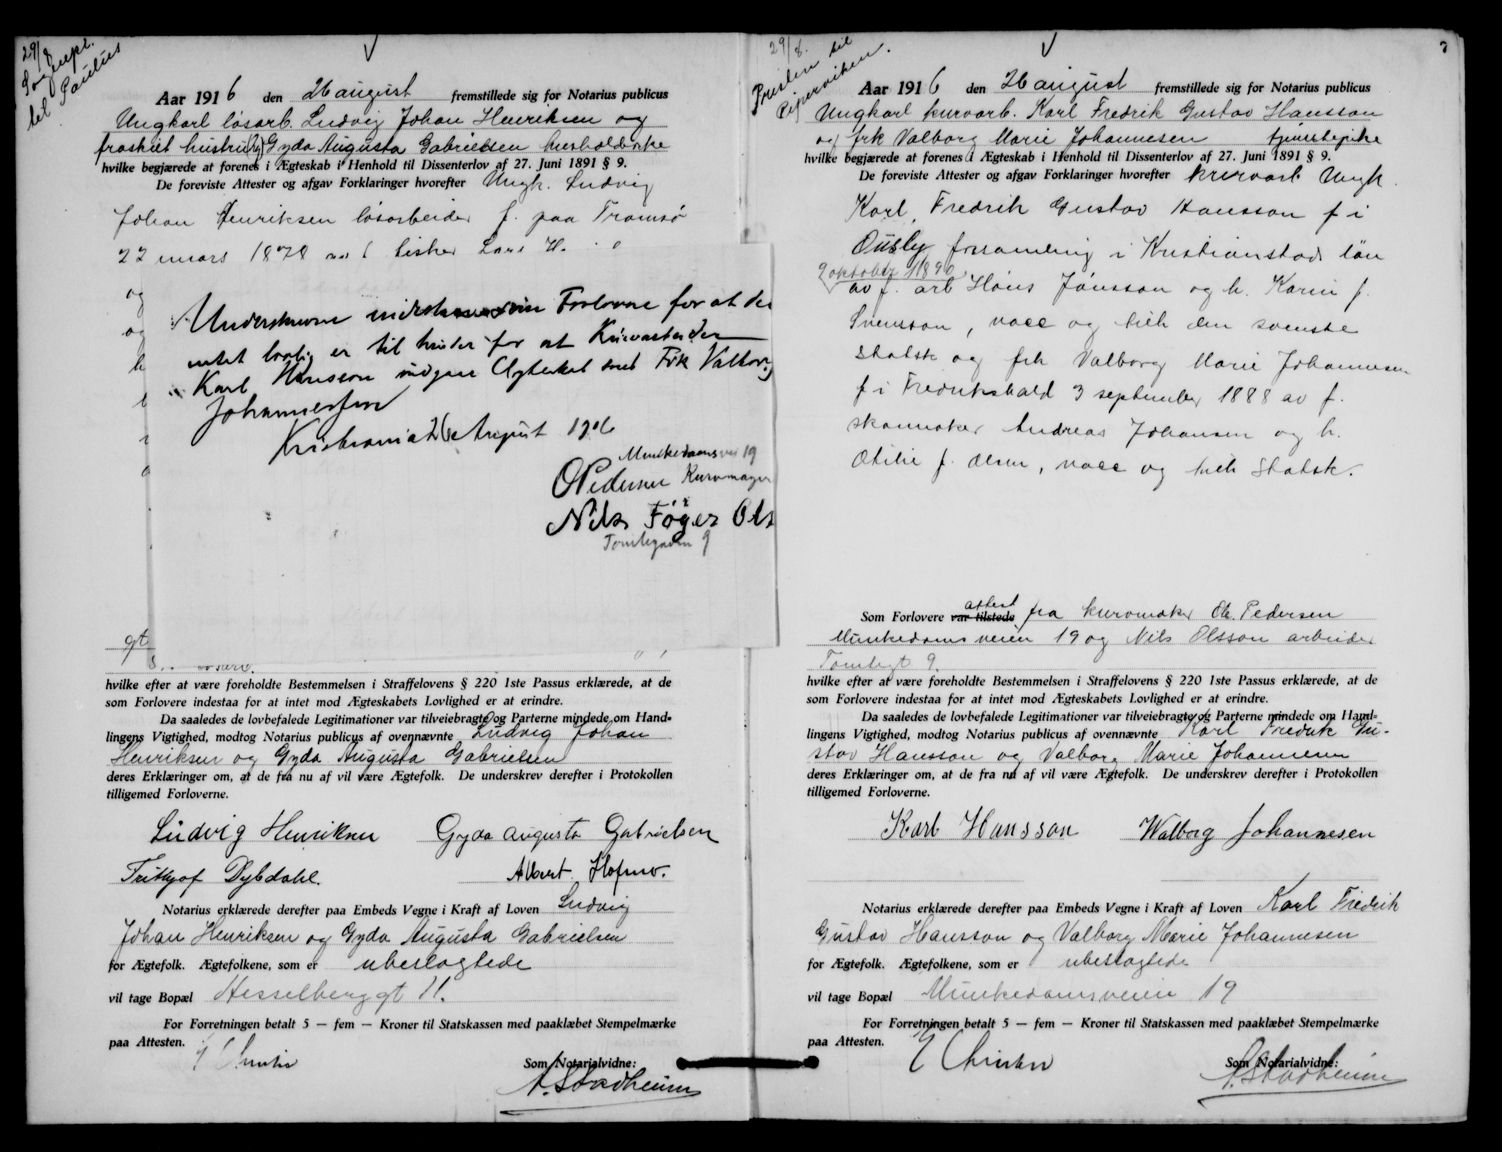 29/8
Sognepr.
til Paulus
Aar 1916 den 26 august fremstillede sig for Notarius publicus
Ungkarl løsarb. Ludvig Johan Henriksen og
fraskilt hustru Gyda Augusta Gabrielsen
hvilke begjærede at forenes i Ægteskab i Henhold til Dissenterlov af 27. Juni 1891 § 9.
De foreviste Attester og afgav Forklaringer hvorefter Ungk. Ludvig
Johan Henriksen løsarbeider f. paa Tromsø
22 mars 1878 fisker Lars H.
og
og
Underskrevne Forlovere for at der
intet lovlig er til hinder for at
Karl Hansson indgaar Ægteskab med Frk Valborg
Johannessen
Kristiania 26 August 1916
Munkedamsvei 19
O Pedersen Kurvmager
Nils Ols
Tomtegaden 9
gt
hvilke efter at være foreholdte Bestemmelsen i Straffelovens § 220 1ste Passus erklærede, at de
som Forlovere indestaa for at intet mod Ægteskabets Lovlighed er at erindre.
Da saaledes de lovbefalede Legitimationer var tilveiebragte og Parterne mindede om Hand-
lingens Vigtighed, modtog Notarius publicus af ovennævnte Ludvig Johan
Henriksen og Gyda Augusta Gabrielsen
deres Erklæringer om, at de fra nu af vil være Ægtefolk. De underskrev derefter i Protokollen
tilligemed Forloverne.
Ludvig Henriksen Gyda Augusta Gabrielsen
Fritjof Dybdahl. Albert Hofmo.
Notarius erklærede derefter paa Embeds Vegne i Kraft af Loven Ludvig
Johan Henriksen og Gyda Augusta Gabrielsen
for Ægtefolk. Ægtefolkene, som er ubeslægtede
vil tage Bopæl Hesselberggt 11.
For Forretningen betalt 5 — fem — Kroner til Statskassen med paaklæbet Stempelmærke
paa Attesten.
Som Notarialvidne:
A. Stadheim
7
29/8.
Presten til
Piperviken.
Aar 1916 den 26 august fremstillede sig for Notarius publicus
Ungkarl kurvarb. Karl Fredrik Gustav Hansson
og frk Valborg Marie Johannesen tjenestepike
hvilke begjærede at forenes i Ægteskab i Henhold til Dissenterlov af 27. Juni 1891 § 9.
De foreviste Attester og afgav Forklaringer hvorefter kurvarb Ungk.
Karl Fredrik Gustav Hansson f i
Ousby forsamling i Kristianstads län
9 oktober 1890
av f. arb Høns Jönsson og h. Karin f.
Svensson, vacc og tilh den svenske
statsk og frk Valborg Marie Johannesen
f i Fredrikshald 3 september 1888 av f.
skomaker Andreas Johansen og h.
Otilie f. Olsen, vacc og tilh Statsk.
attest
Som Forlovere var tilstede fra kurvmaker Ole Pedersen
Munkedamsveien 19 og Nils Olsson arbeider
Tomtegt 9.
hvilke efter at være foreholdte Bestemmelsen i Straffelovens § 220 1ste Passus erklærede, at de
som Forlovere indestaa for at intet mod Ægteskabets Lovlighed er at erindre.
Da saaledes de lovbefalede Legitimationer var tilveiebragte og Parterne mindede om Hand-
lingens Vigtighed, modtog Notarius publicus af ovennævnte Karl Fredrik Gu-
stav Hansson og Valborg Marie Johannesen
deres Erklæringer om, at de fra nu af vil være Ægtefolk. De underskrev derefter i Protokollen
tilligemed Forloverne.
Karl Hansson Walborg Johannesen
Notarius erklærede derefter paa Embeds Vegne i Kraft af Loven Karl Fredrik
Gustav Hansson og Valborg Marie Johannesen
for Ægtefolk. Ægtefolkene, som er ubeslægtede
vil tage Bopæl Munkedamsveien 19
For Forretningen betalt 5 — fem — Kroner til Statskassen med paaklæbet Stempelmærke
paa Attesten.
Som Notarialvidne:
A. Stadheim